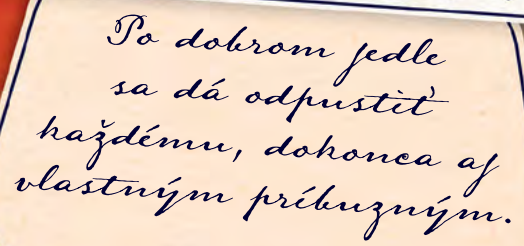 Po dobrom jedle
sa dá odpustiť
každému, dokonca aj
vlastným príbuzným.